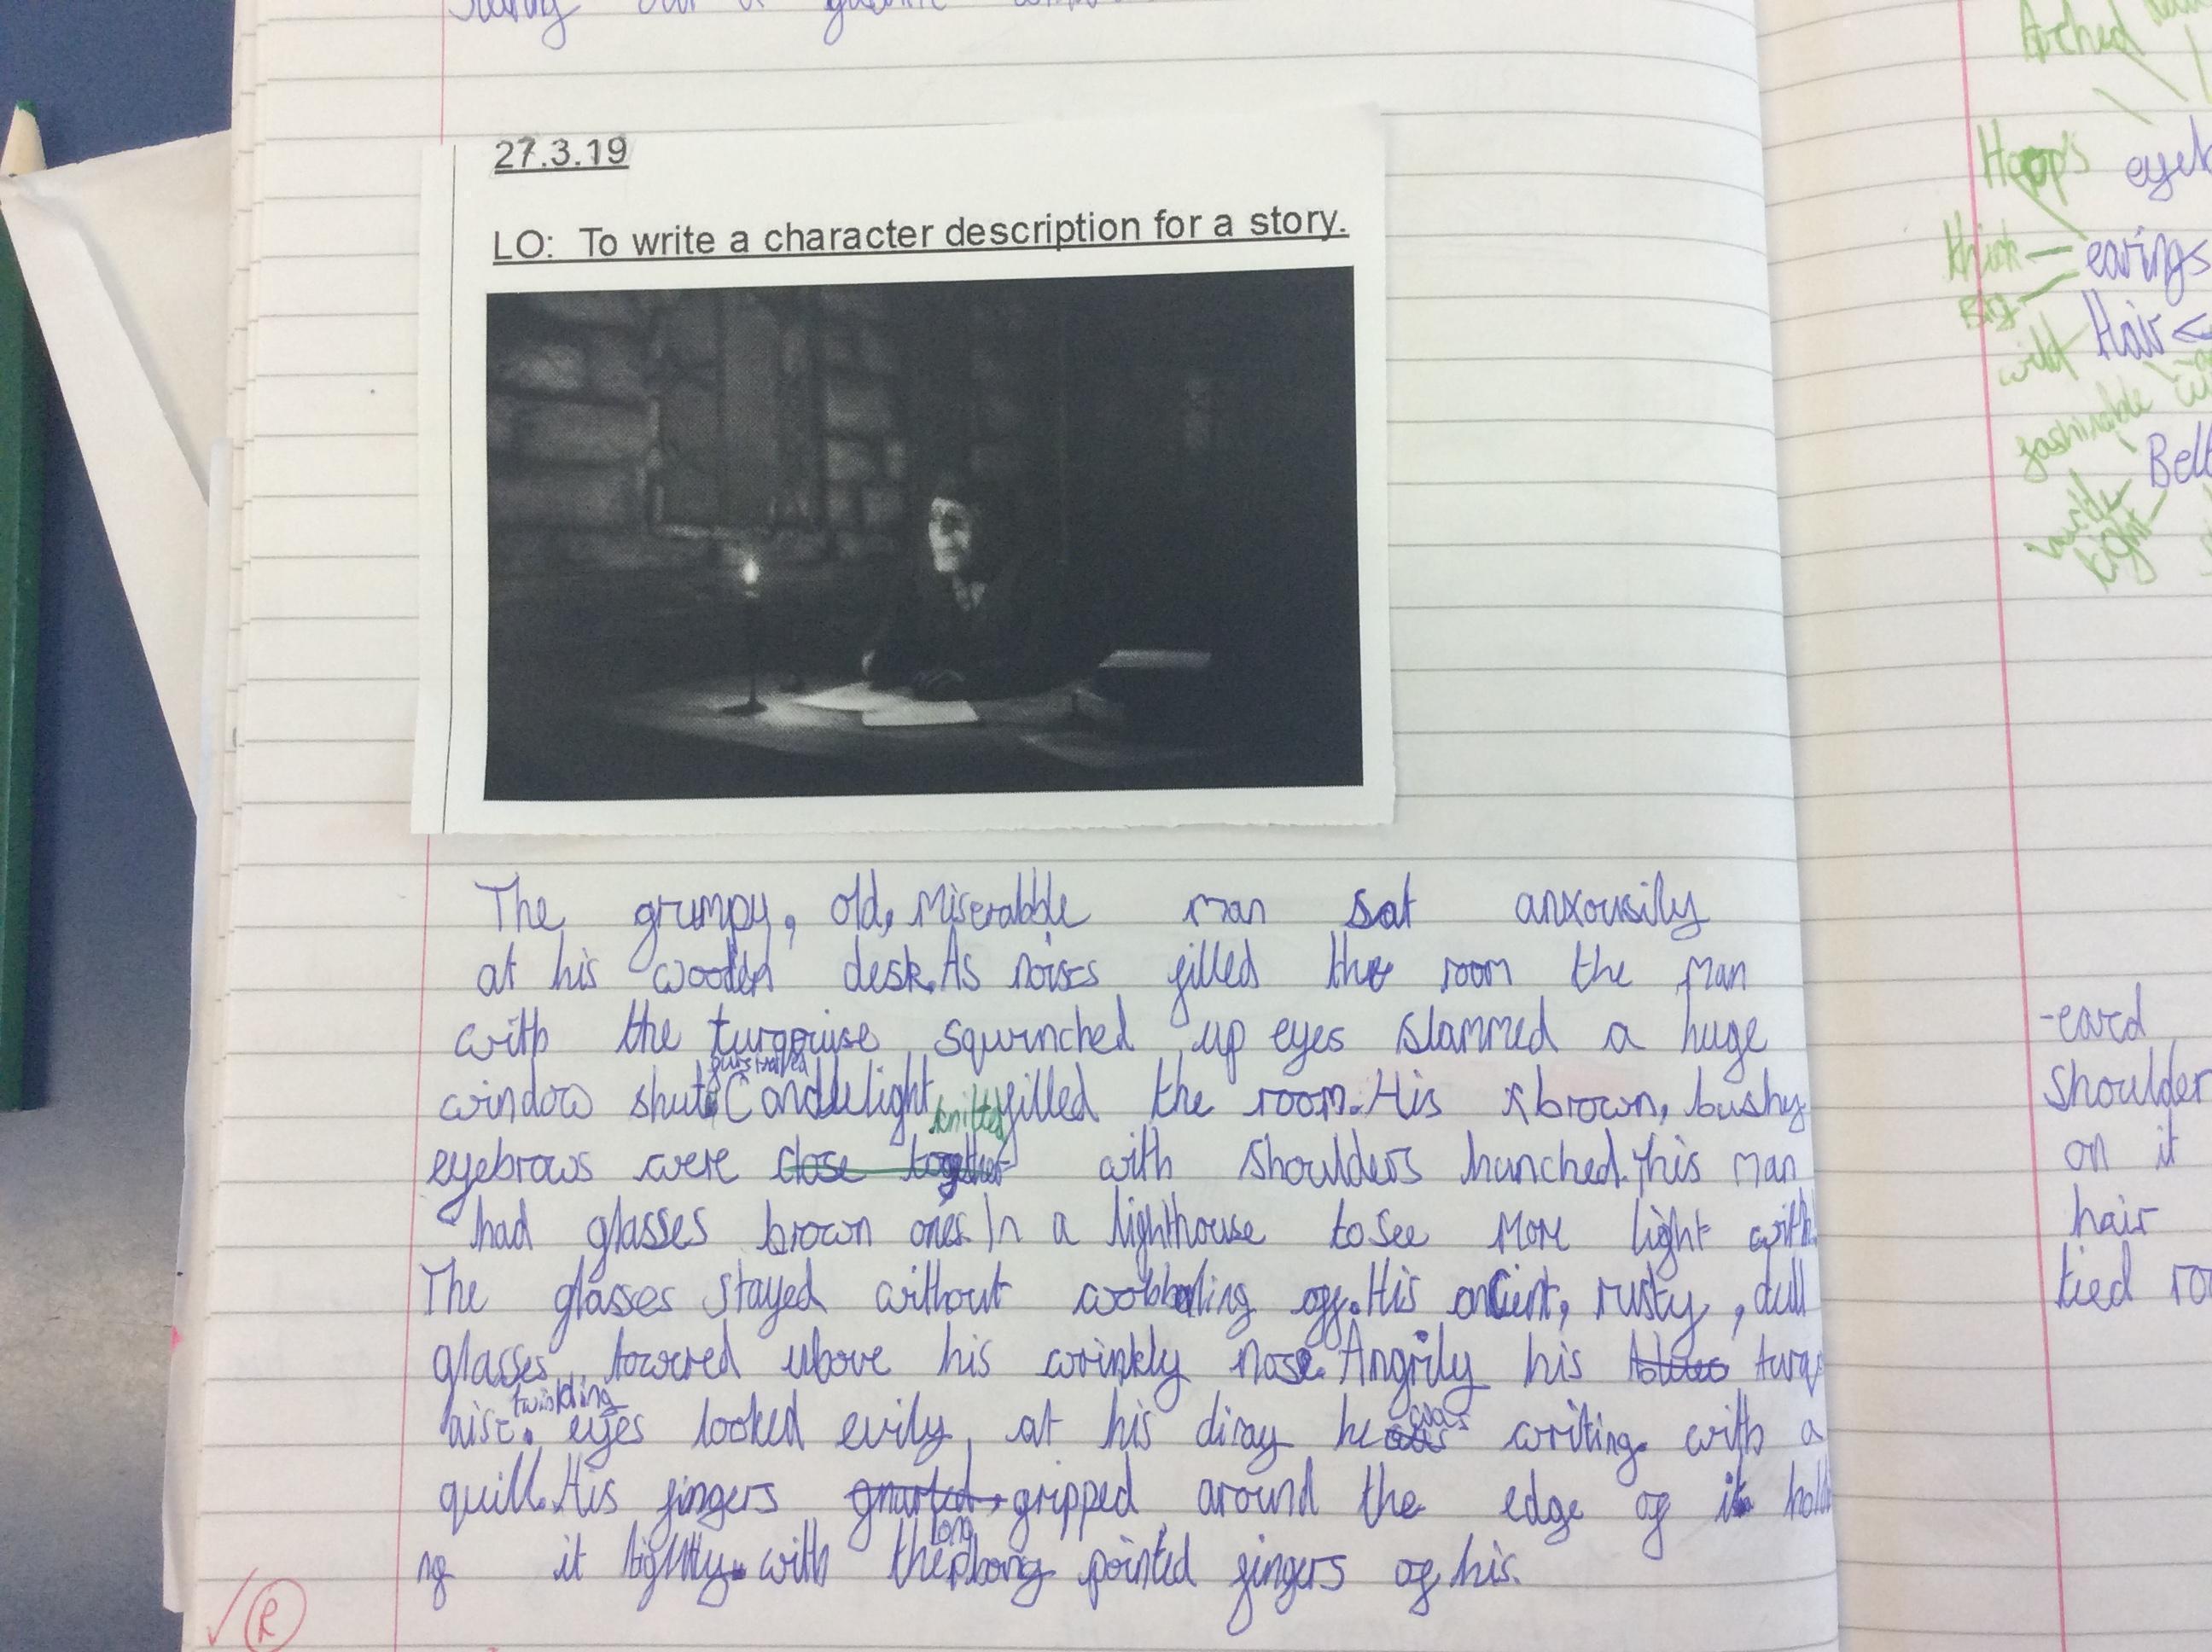 27.3.19
LO: To write a character description for a story.
The grumpy, old, miserabble man sat anxousily
at his wooden desk. As noises filled the room the man
with the turqouise squinched up eyes slammed a huge
window shut. Candlelight filled the room. His brown, bushy
knitted
eyebrows were close together with shoulders hunched. This man
had glasses brown ones. In a lighthouse to see more light with.
The glasses stayed without wobbling off. His ancient, rusty, dull
glasses towered above his wrinkly nose. Angrily his turq
uise. twinkling eyes looked evily at his diray he was writing with a
quill. His fingers gnarled, gripped around the edge of it holdi
ng it tightly. with the long pointed fingers of his.
R
Arched
Hoops
thick
earings
Big
wild
Hair
fashinable
Belt
tight
-eard
shoulder
on it
hair
tied ro